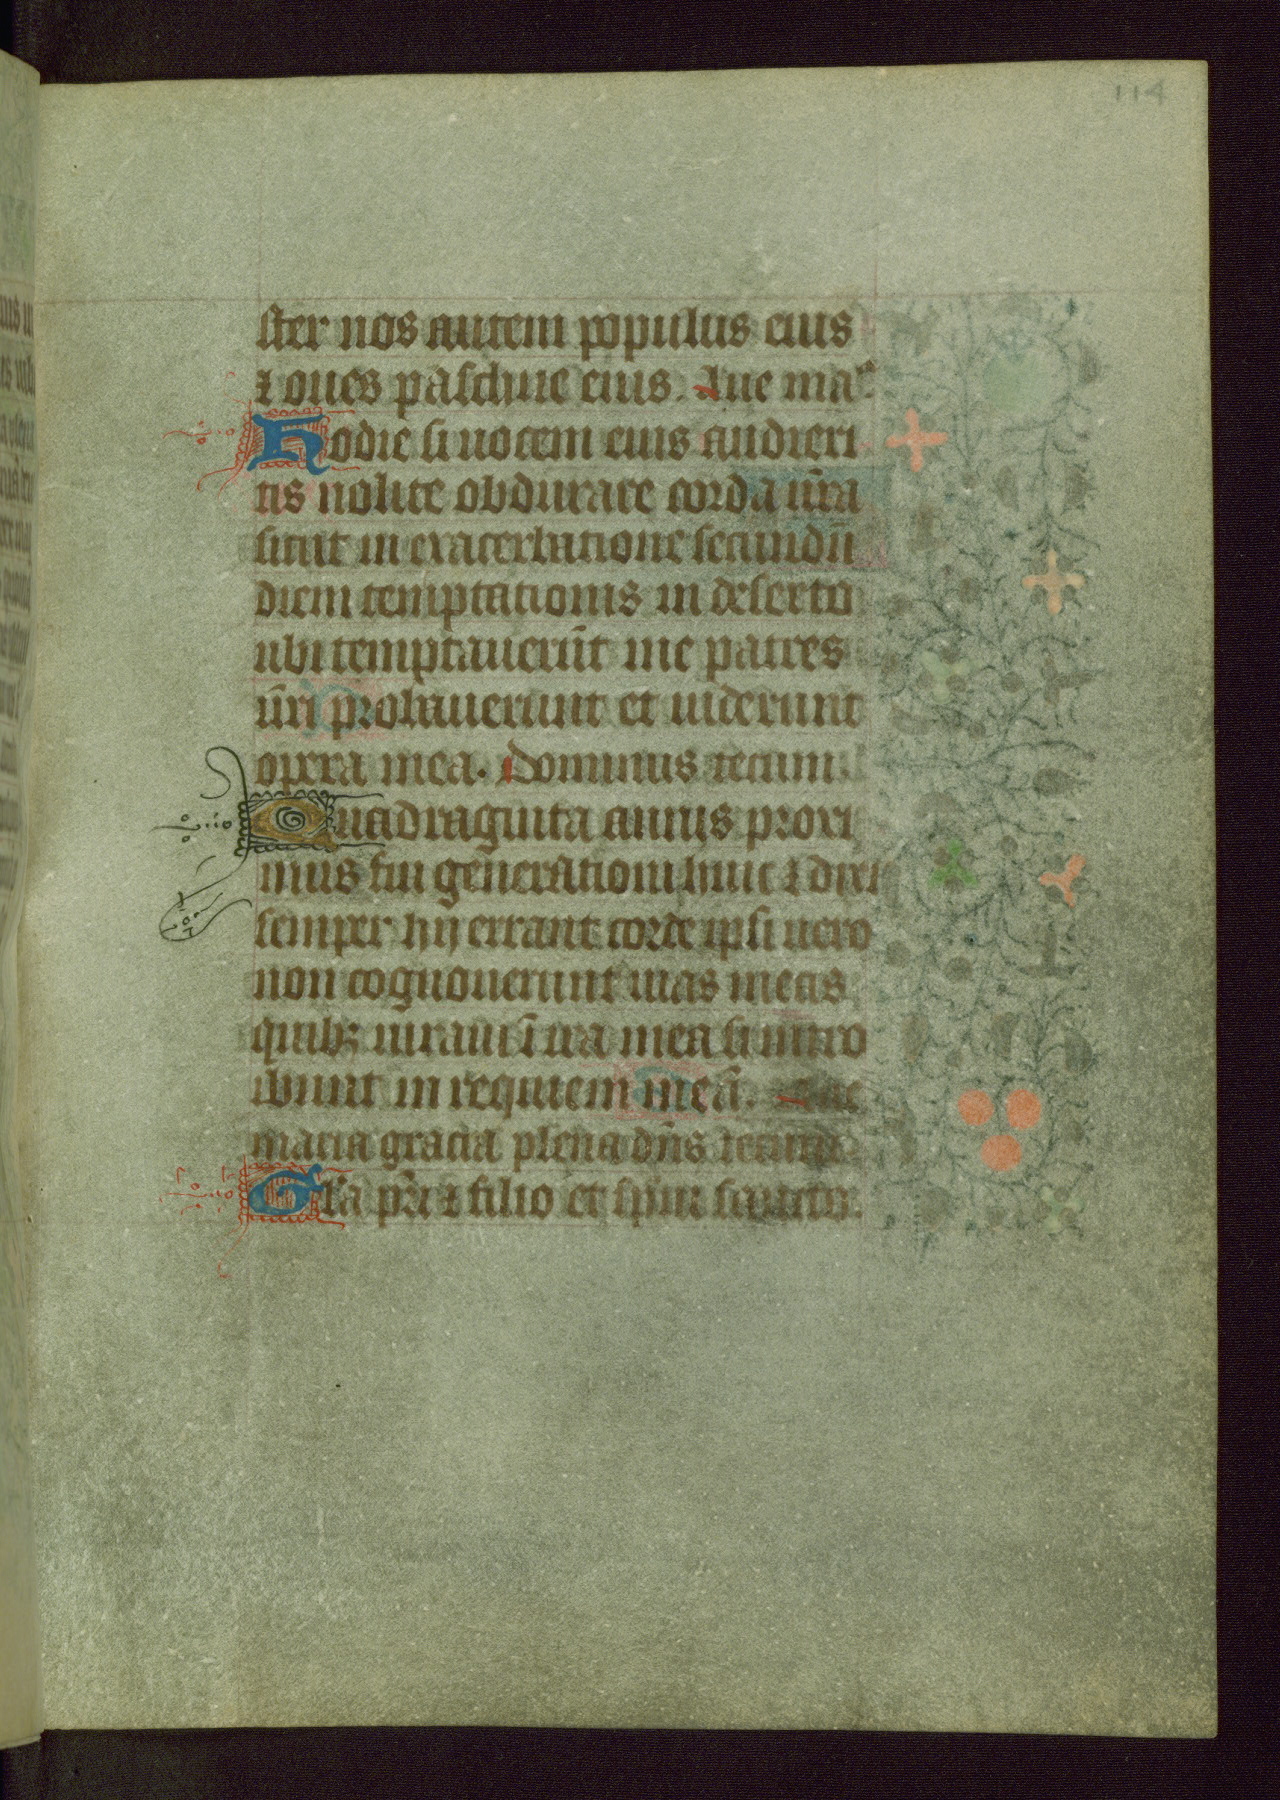 114
ster nos autem populus eius
⁊ oues paschue eius. Aue maa.
Hodie si uocem eius audieri
tis nolite obdurare corda ur̄a
sicut in exacerbatione secundū
diem temptationis in deserto
ubi temptauerūt me patres
ur̄i probauerunt et uiderunt
opera mea. Dominus tecum.
Quadraginta annis proxi
mus fui generationi huic ⁊ dixi
semper hij errant corde ipsi uero
non cognouerunt uias meas
quibꝫ iuraui ī ira mea si intro
ibunt in requiem meā. Aue
maria gracia plena dn̄s tecum
Gl̄a pr̄i ⁊ filio et spūi sancto.